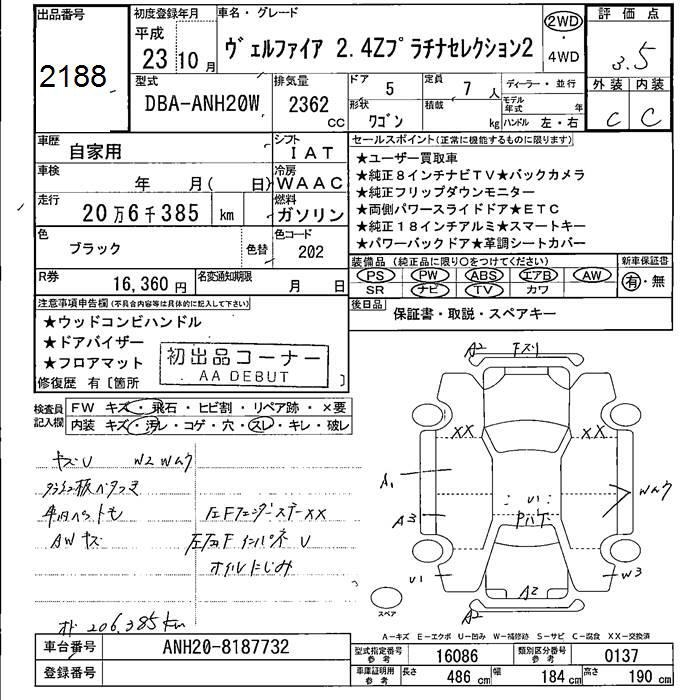 出品番号
2188
初度登録年月
平成
23年10月
車名・グレード
ヴェルファイア 2.4Zプラチナセレクション2
2WD
・
4WD
評価点
3.5
外装 内装
C C
型式
DBA-ANH20W
排気量
2362
CC
ドア
5
形状
ワゴン
定員
7人
積載
kg
ディーラー・並行
モデル年式 年
ハンドル 左・右
車歴
自家用
シフト
IAT
車検
年 月( 日)
冷房
WAAC
走行
20万6千385 km
燃料
ガソリン
色
ブラック
色替
色コード
202
R券
16,360円
名変通知期限
月 日
セールスポイント(正常に機能するものに限ります)
★ユーザー買取車
★純正8インチナビTV★バックカメラ
★純正フリップダウンモニター
★両側パワースライドドア★ETC
★純正18インチアルミ★スマートキー
★パワーバックドア★革調シートカバー
装備品(純正品に限り○をつけてください)
PS PW ABS エアB AW
SR ナビ TV カワ
新車保証書
有・無
後日品
保証書・取説・スペアキー
注意事項申告欄(不具合内容等は具体的に記入して下さい)
★ウッドコンビハンドル
★ドアバイザー
★フロアマット
初出品コーナー
AA DEBUT
修復歴 有〔箇所 〕
検査員記入欄
FW キズ・飛石・ヒビ割・リペア跡・×要
内装 キズ・汚レ・コゲ・穴・スレ・キレ・破レ
キズU W2 Wムク
AWキズ
左Fフェンダーステー××
左右Fインパネ U
オイルにじみ
206,385km
A2 Fスリ
XX XX
A1
A3
U1
Wムク
W3
A2
A2
スペア
A-キズ E-エクボ U-凹み W-補修跡 S-サビ C-腐食 XX-交換済
車台番号
ANH20-8187732
登録番号
型式指定番号 参考
16086
類別区分番号 参考
0137
車庫証明用 参考
長さ 486 cm 幅 184 cm 高さ 190 cm